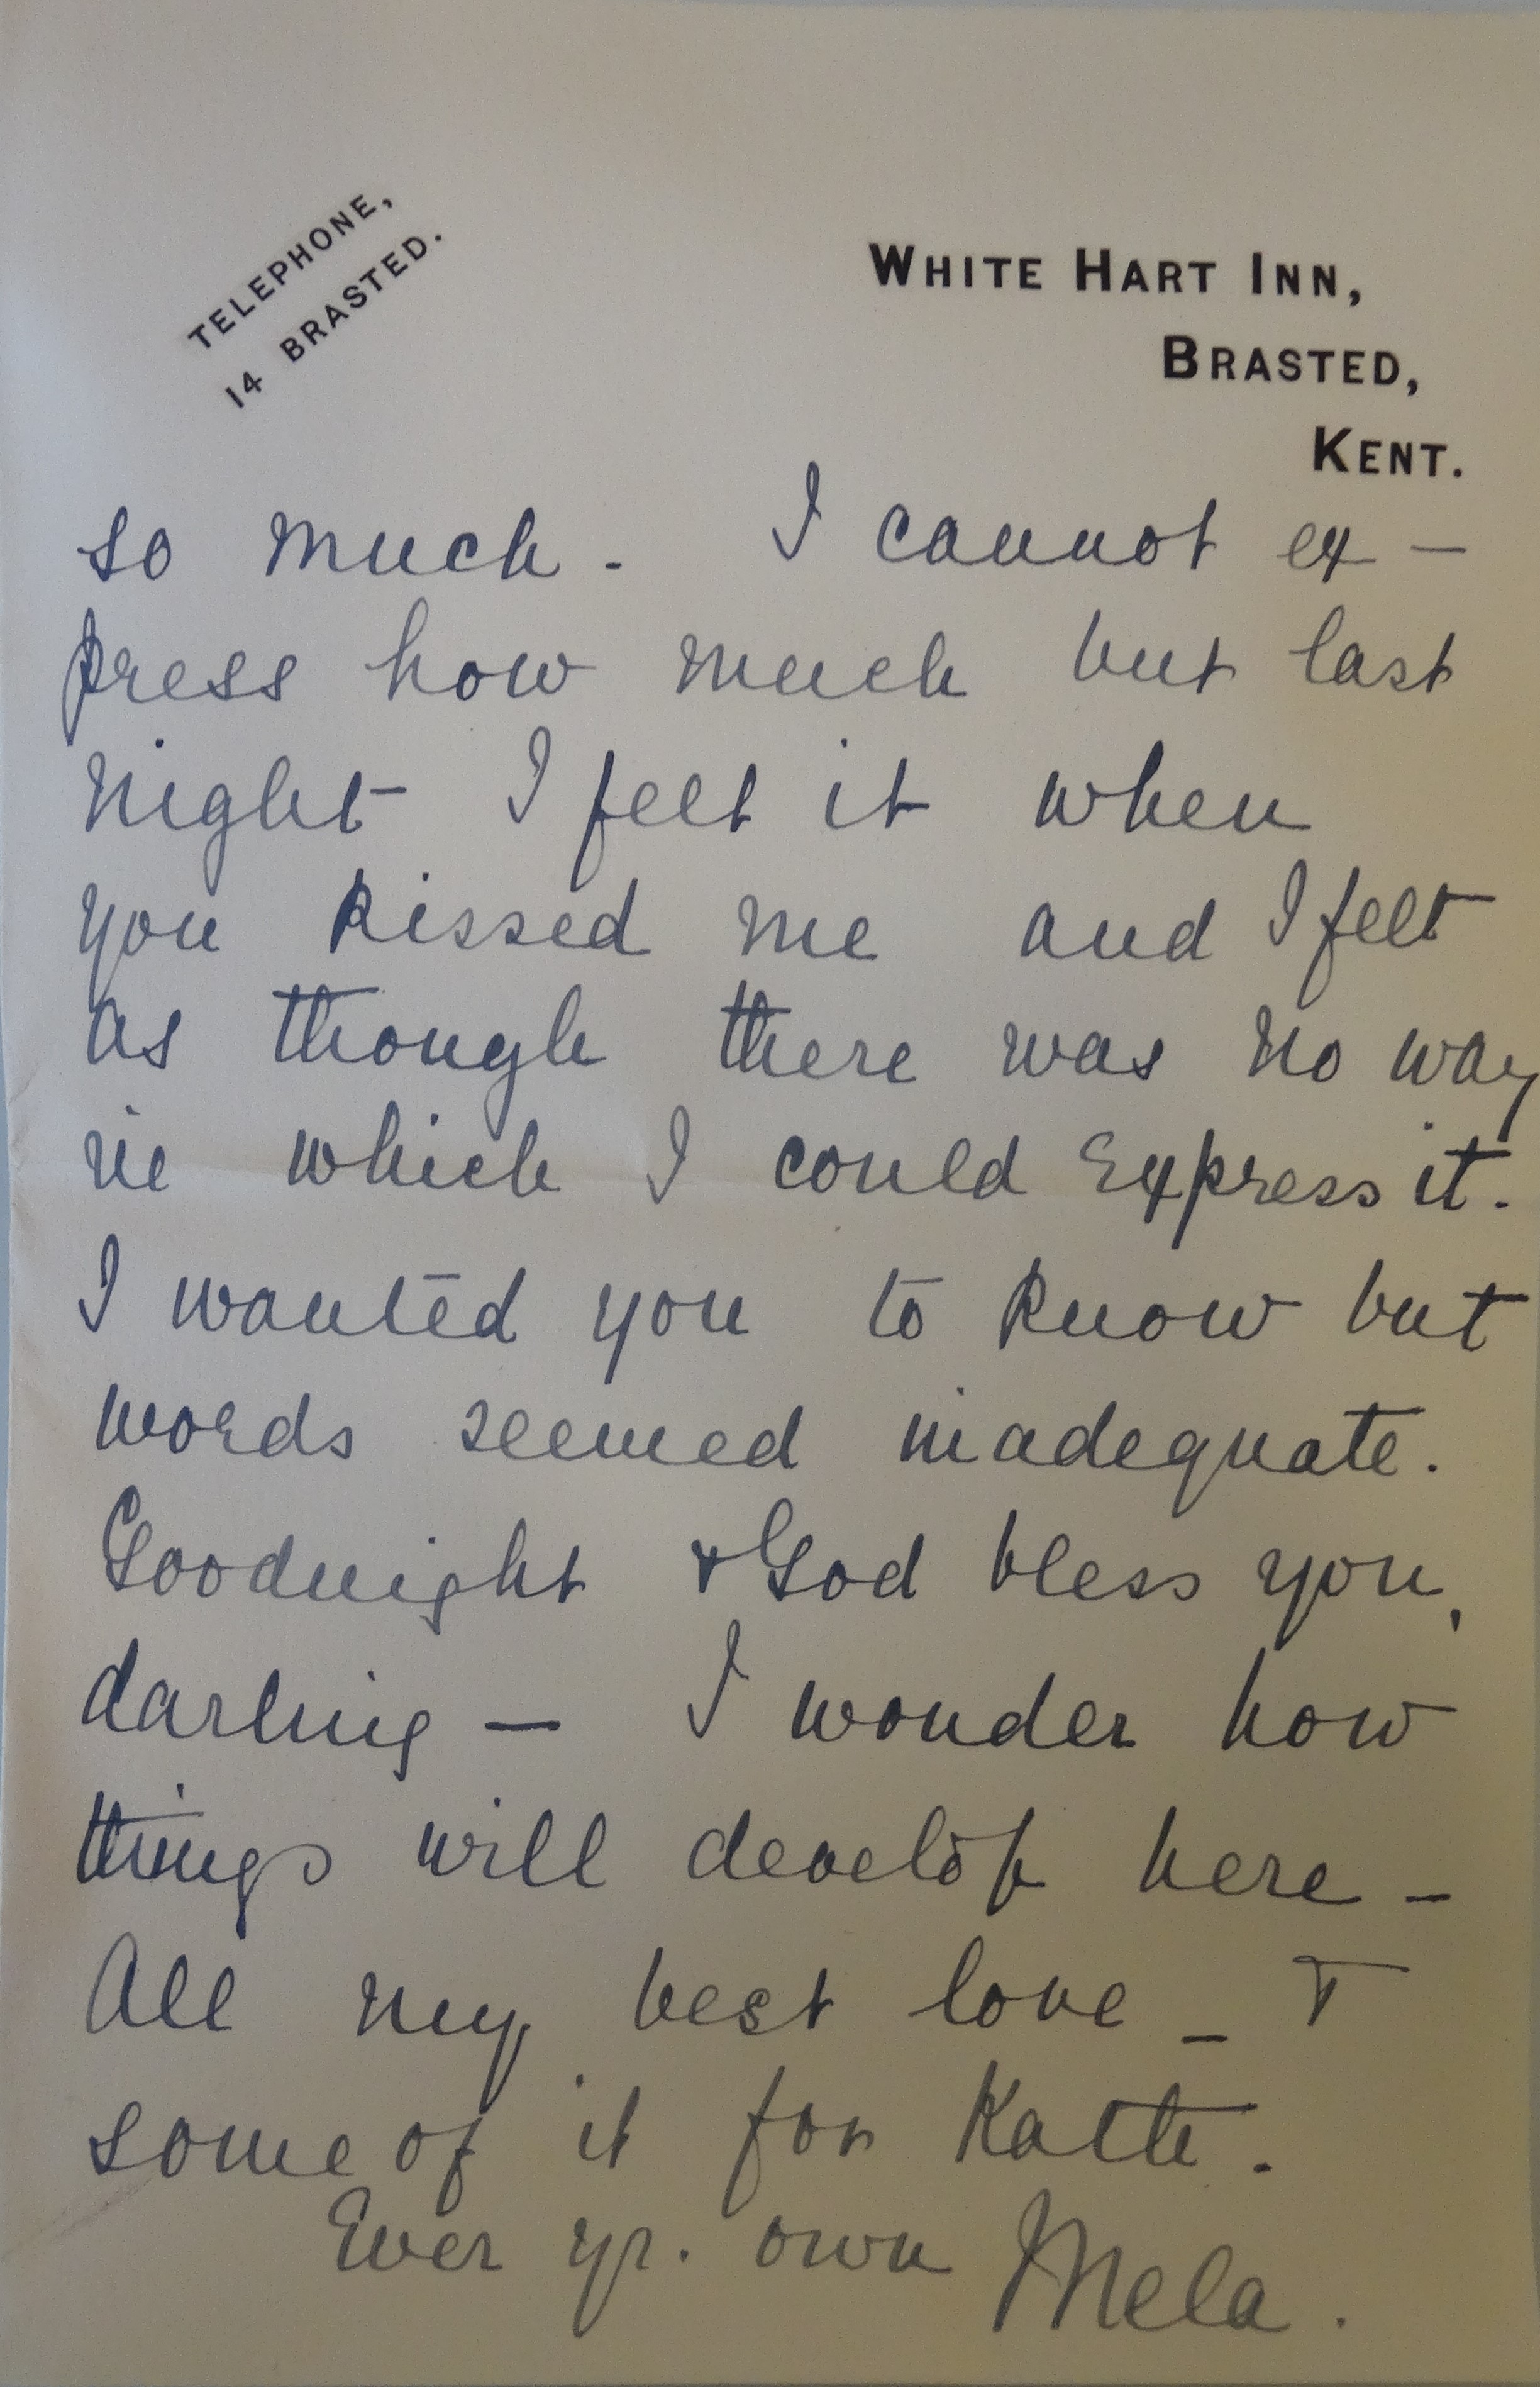 TELEPHONE,
14 BRASTED.
WHITE HART INN,
BRASTED,
KENT.
so much - I cannot ex –
press how much but last
night I felt it when
you kissed me and I felt
as though there was no way
in which I could express it.
I wanted you to know but
words seemed inadequate.
Goodnight & God bless you,
darling — I wonder how
things will develop here –
All my best love – &
some of it for Katte.
Ever yr. own Mela.